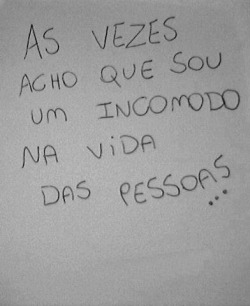 AS VEZES
ACHO QUE SOU
UM INCOMODO
NA VIDA
DAS PESSOAS...